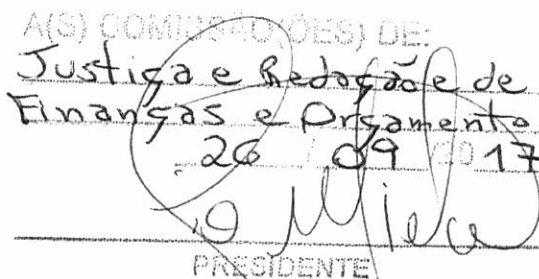 A(S) COMISSÃO(ÕES) DE:
Justiça e Redação e de
Finanças e Orçamento
26 / 09 /2017
PRESIDENTE